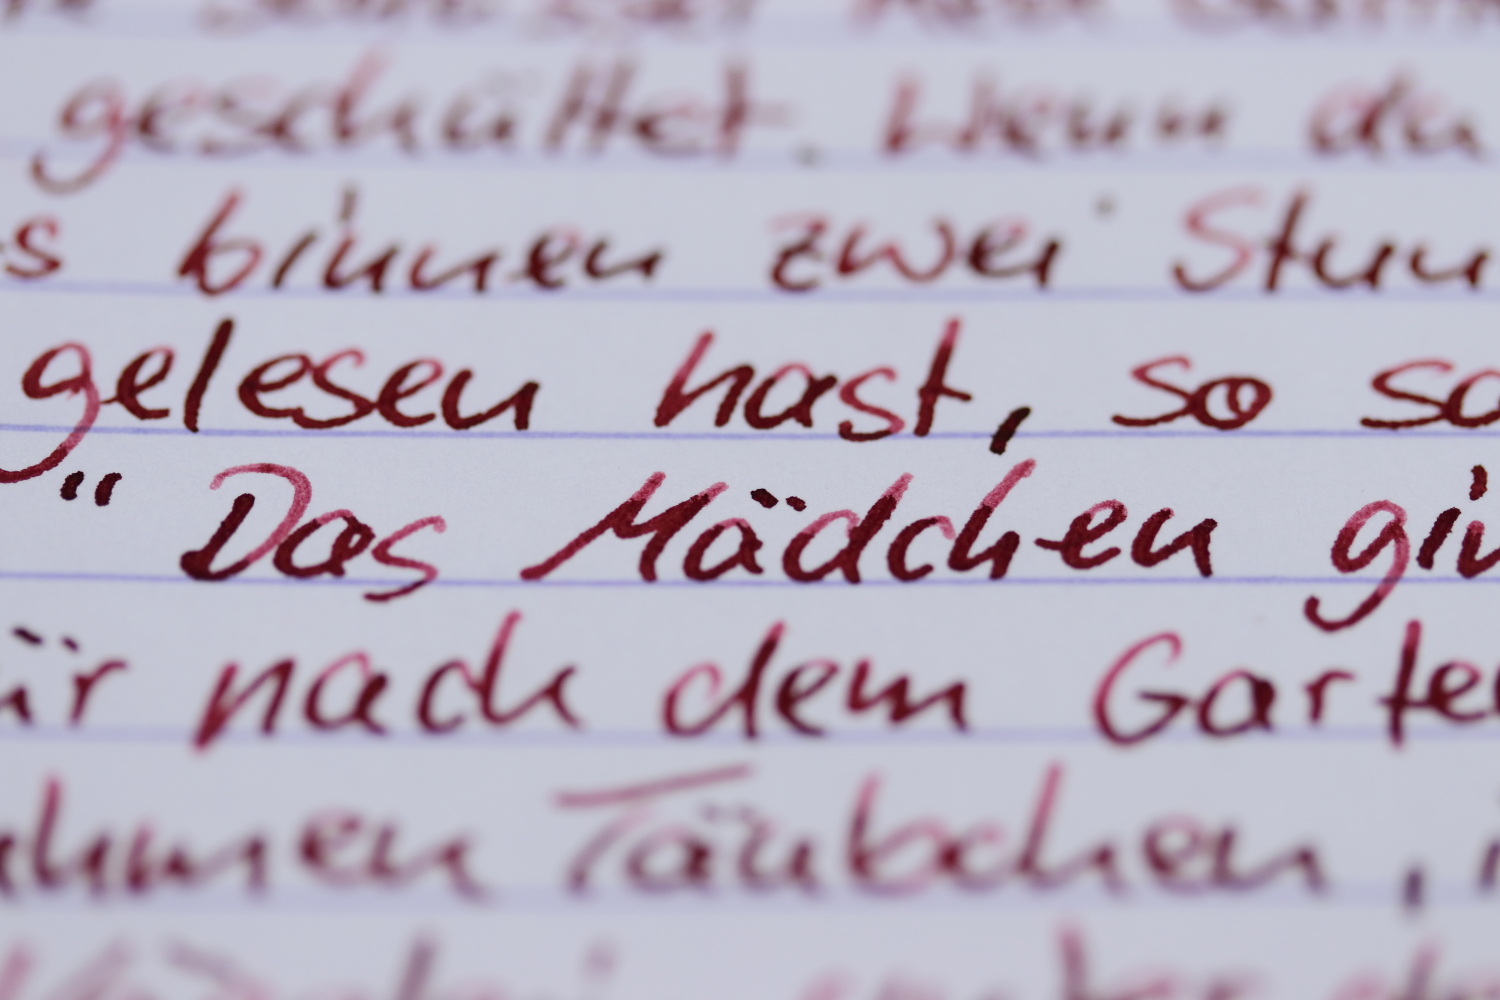 geschüttet. Wenn du
s binnen zwei Stun
gelesen hast, so so
" Das Mädchen gin
ür nach dem Garte
ahmen Täubchen, i